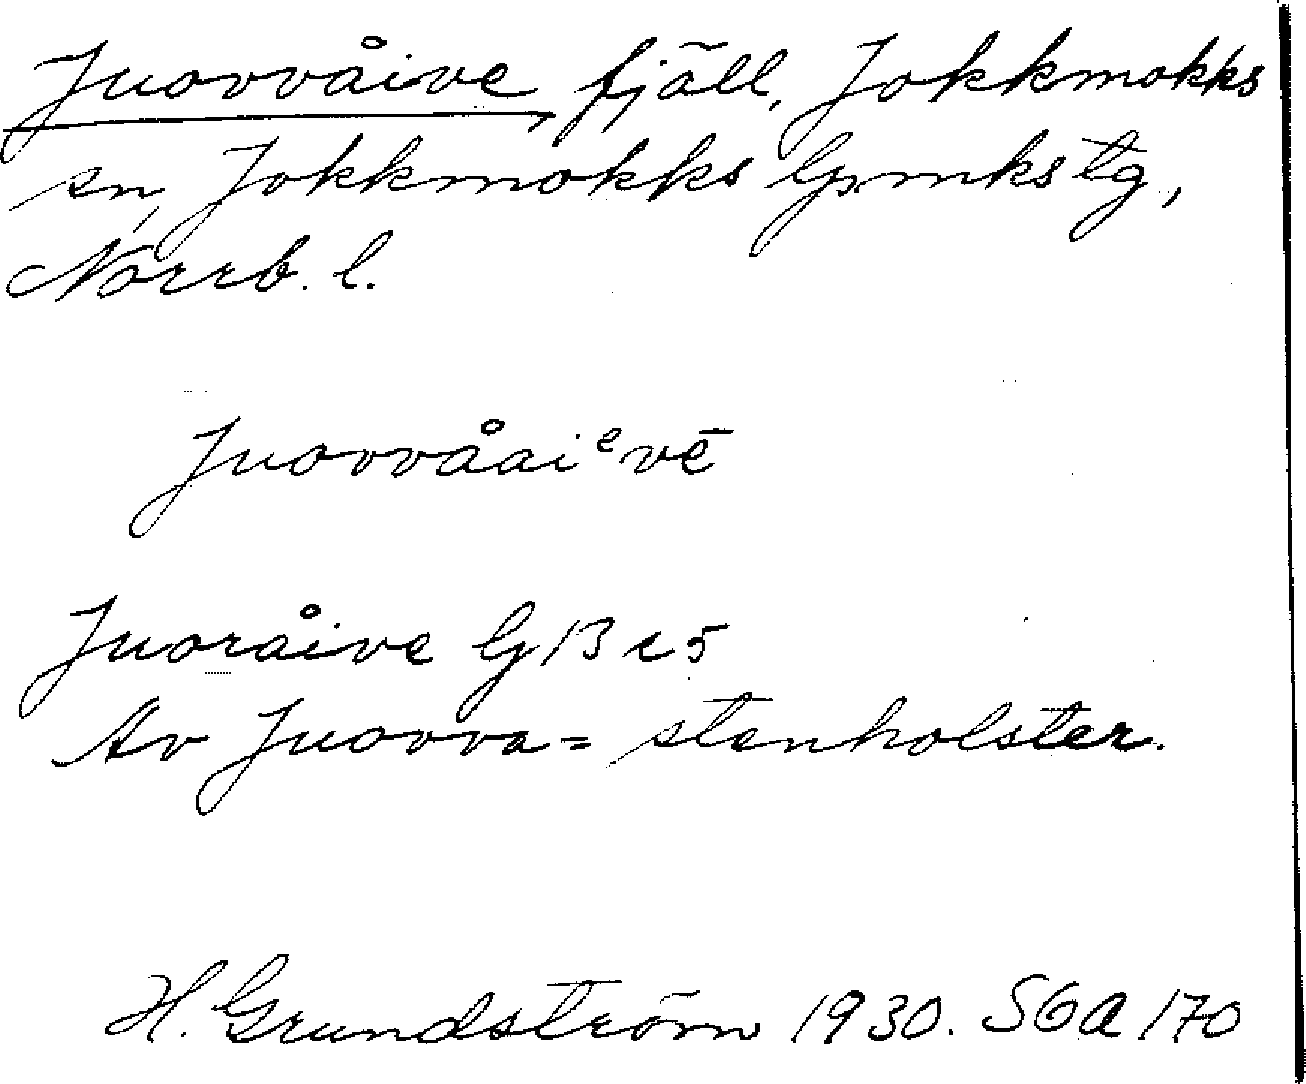 Juovvåive, fjäll, Jokkmokks
sn, Jokkmokks lpmkstg,
Norrb. l.
Juovvåaiᵉvē
Juoråive G 13 c 5
Av Juovva = stenholster.
H. Grundström 1930. SGA 170